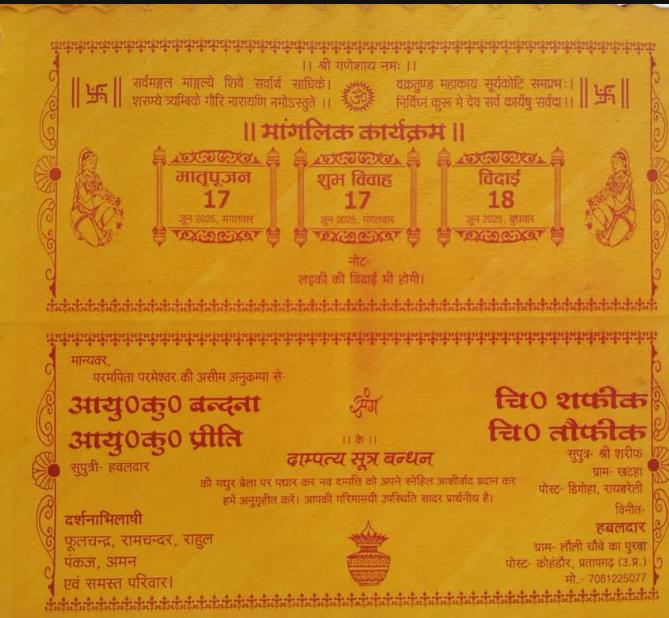 ।। श्री गणेशाय नमः ।।
सर्वमङ्गल मांङ्गल्ये शिवे सर्वार्थ साधिके।
शरण्ये त्र्यम्बिके गौरि नारायणि नमोऽस्तुते ।।
ॐ
वक्रतुण्ड महाकाय सूर्यकोटि समप्रभः।
निर्विघ्नं कुरू मे देव सर्व कार्येषु सर्वदा।।
|| मांगलिक कार्यक्रम ||
मातृपूजन
17
जून 2025, मंगलवार
शुभ विवाह
17
जून 2025, मंगलवार
विदाई
18
जून 2025, बुधवार
नोट-
लड़की की विदाई भी होगी।
मान्यवर,
परमपिता परमेश्वर की असीम अनुकम्पा से-
आयु0कु0 बन्दना
आयु0कु0 प्रीति
सुपुत्री- हवलदार
संग
चि0 शफीक
चि0 तौफीक
सुपुत्र- श्री शरीफ
ग्राम- खटहा
पोस्ट- डिगोहा, रायबरेली
।। के ।।
दाम्पत्य सूत्र बन्धन
की मधुर बेला पर पधार कर नव दम्पत्ति को अपने स्नेहिल आशीर्वाद प्रदान कर
हमें अनुगृहीत करें। आपकी गरिमामयी उपस्थिति सादर प्रार्थनीय है।
दर्शनाभिलाषी
फूलचन्द्र, रामचन्दर, राहुल
पंकज, अमन
एवं समस्त परिवार।
विनीत-
हवलदार
ग्राम- लौली चौबे का पुरवा
पोस्ट- कोहंडौर, प्रतापगढ़ (उ.प्र.)
मो.- 7081225077